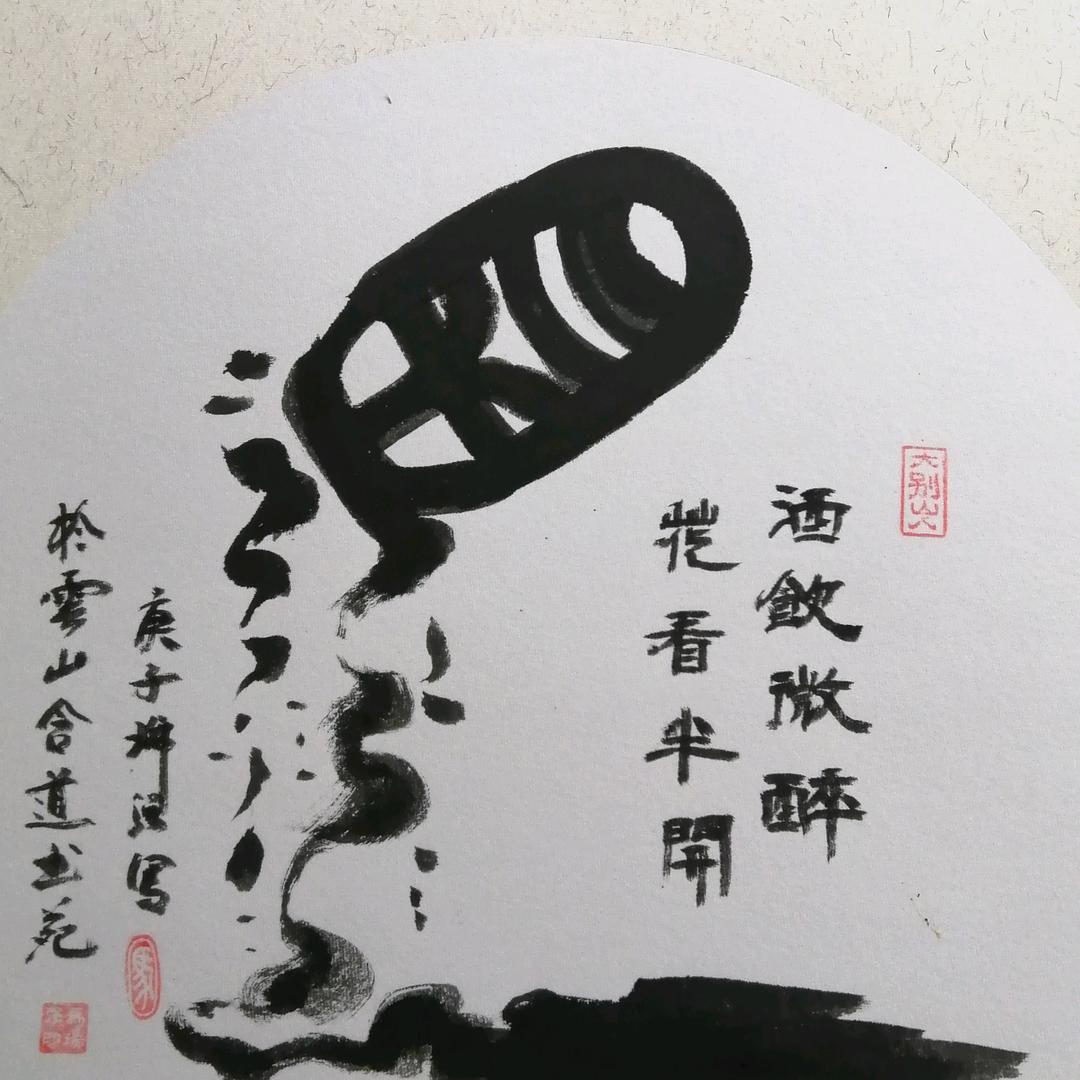 大别山人
酒飲微醉
花看半開
庚子
写
於雲山合道書苑